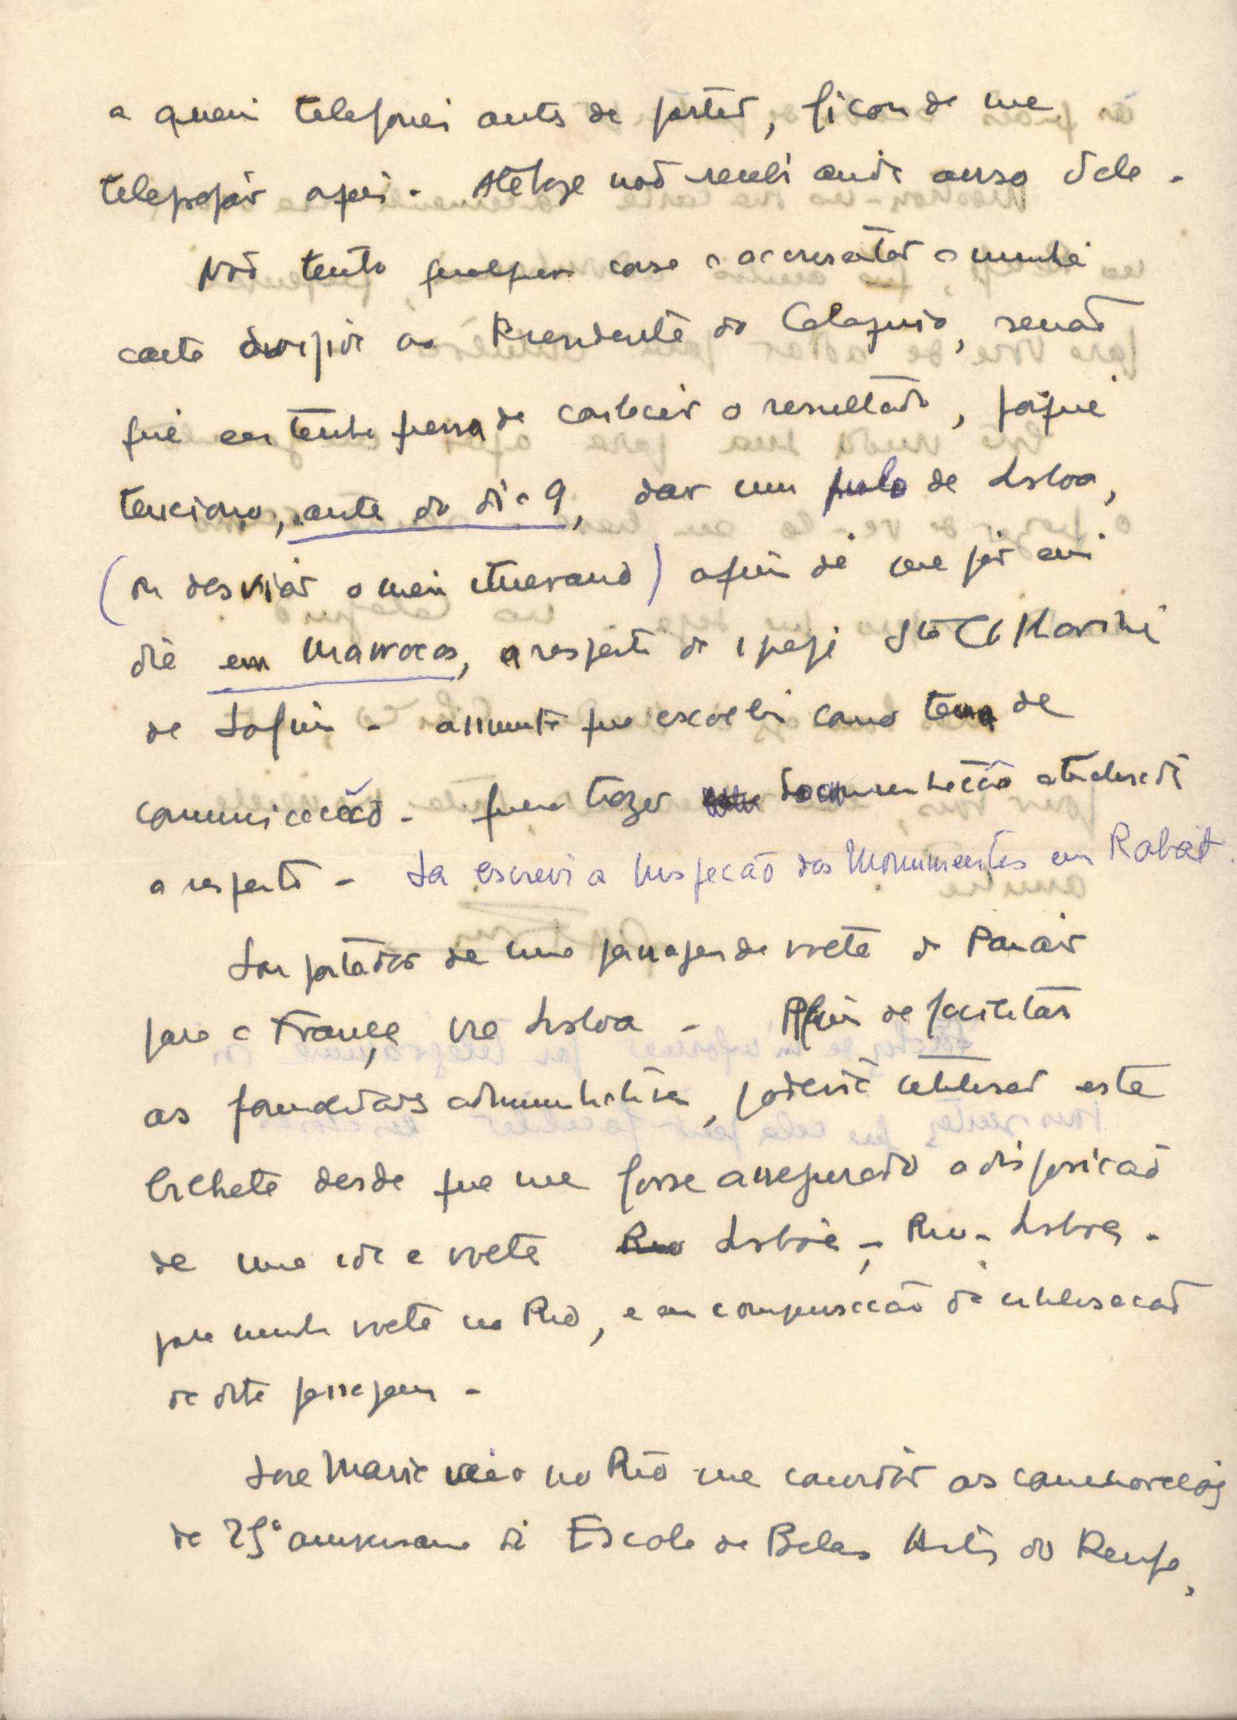 a quem telefonei antes de partir, ficou de me
telegrafar aqui. Até hoje não recebi ainda aviso dele.
Não tenho qualquer coisa a acrescentar a minha
carta dirigida ao Presidente do Coloquio, senão
que eu tenha pressa de conhecer o resultado, porque
tenciono, antes do dia 9, dar um pulo de Lisboa,
(ou desviar o meu itinerario) afim de me pôr em
dia em Marrocos, a respeito da igreja
de Safim - assunto que escolhi como tema de
comunicação. Quero trazer documentação atualisada
a respeito - Ja escrevi a Inspecão dos Monumentos em Rabat.
Sou portador de uma passagem de volta da Panair
para a França, via Lisboa - Afim de facilitar
as formalidades administrativas, poderia utilisar este
bilhete desde que me fosse assegurado a disposicão
de uma ida e volta Lisboa - Rio - Lisboa -
para minha volta no Rio, e em compensacão da utilisacão
da dita passagem -
José Maria veio no Rio me convidar as comemorações
do 25º aniversario da Escola de Belas Artes do Recife,